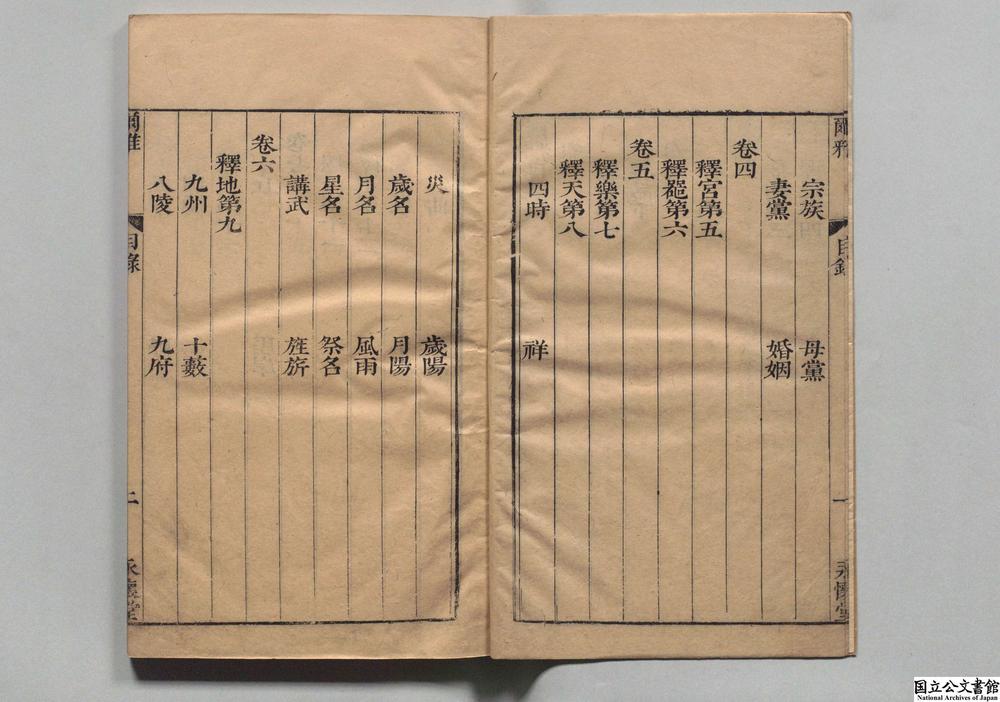 爾雅
目錄
一
永懷堂
宗族 母黨
妻黨 婚姻
卷四
釋宮第五
釋器第六
卷五
釋樂第七
釋天第八
四時 祥
災 歲陽
歲名 月陽
月名 風雨
星名 祭名
講武 旌旂
卷六
釋地第九
九州 十藪
八陵 九府
爾雅
目錄
二
永懷堂
国立公文書館
National Archives of Japan